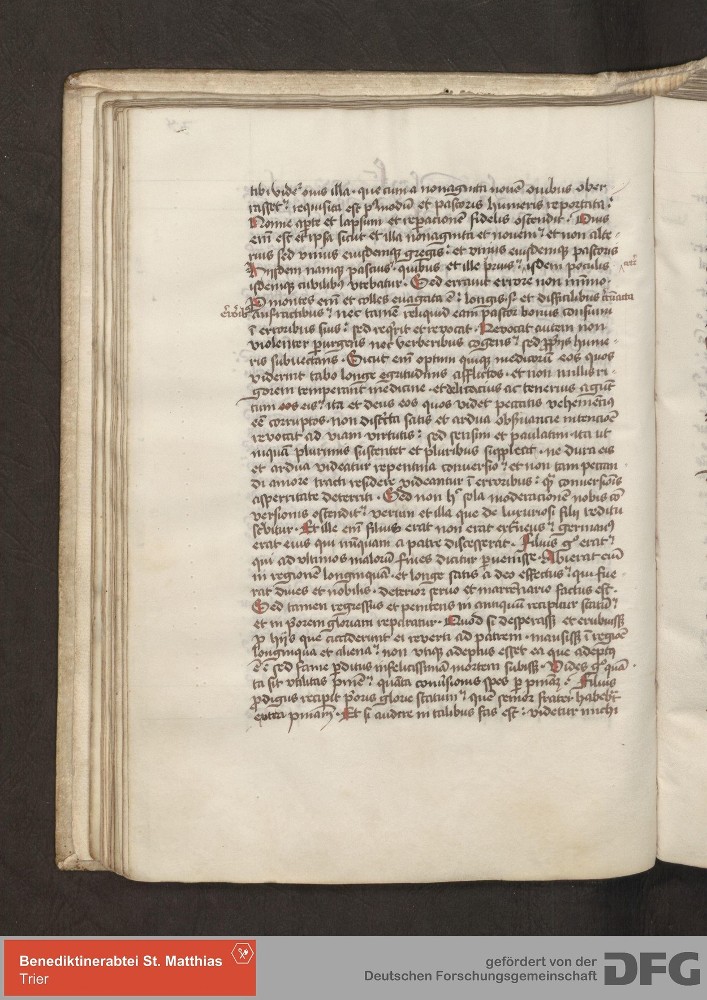 tibi videt᷑ ouis illa · que cum a nonaginta nouē ouibus ober
rasset : requisita est p᷑ modū et pastoris humeris reportata :
Nonne apte et lapsum et repacionē fidelis ostendit · Ouis
em̄ est et ipsa sicut et illa nonaginta et nouem : et non alte
rius sed vnius eiusdemqꝫ gregis : et vnius eiusdemqꝫ pastoris
Hijsdem namqꝫ pascuis quibus et ille prius : isdem poculis
isdemqꝫ cubilibus vtebatur · Sed errauit errore non minimo ·
P montes em̄ et colles euagata ē : longis et difficilibus
anfractibus : nec tamē reliquid eam pastor bonus
ī erroribus suis : sed reqrit et reuocat · Reuocat autem non
violenter purgens nec verberibus cogens : sed pprijs hume
ris subuectans · Sicut em̄ optimi quiqꝫ medicorū eos quos
viderint tabo longe egritudinis afflictos · et non nullis ri
gorem temperant medicine · et delicacius ac tenerius agunt
cum eos eis : ita et deus eos quos videt peccatis vehemēcius
ēē corruptos · non districta satis et ardua obseruancie intencioē
reuocat ad viam virtutis : sed sensim et paulatim · ita ut
in quā plurimis sustentet et pluribus supplecat · ne dura eis
et ardua videatur repentina conuersio : et non tam peccan
di amore tracti residere videantur ī erroribus : qᷓ conuersiōis
asperritate deterriti · Sed non h᷑ sola moderacionē nobis cō
versionis ostendit᷑ verum et illa que de luxuriosi filij reditu
scͥbitur · Et ille em̄ filius erat non erat ext᷑neus : germanus
erat eius qui nūquam a patre discesserat · Filius gͦ erat :
qui ad vltimos malorū fines dicitur puenisse · Abierat em̄
in regionē longinquā · et longe satis a deo effectus : qui fue
rat diues et nobilis · deterior seruo et mercenario factus est ·
Sed tamen regressus et penitens in antiquū recipitur statū :
et in pͦorem gloriam reparatur · Quod si desperasset et erubuissꝫ
p hijs que acciderunt ei reuerti ad patrem · mansissꝫ ī regiōe
longinqua et aliena : non vtiqꝫ adeptus esset ea que adeptꝰ
ē sed fame pditus infelicissimā mortem subissꝫ · Vides gͦ quā
ta sit vtilitas pnīe : et quāta conuͥsionis spes p pnīaꝫ · Filius
prodigus recipit pͦoris glorie statum : quē senior frater habebͭ
extra pnīam · Et si audere in talibus fas est : videtur michi
Benediktinerabtei St. Matthias
Trier
gefördert von der
Deutschen Forschungsgemeinschaft
DFG